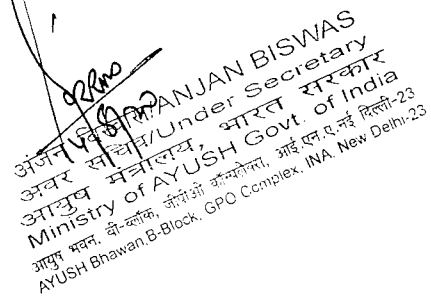 अंजन बिस्वास/ANJAN BISWAS
अवर सचिव/Under Secretary
आयुष मंत्रालय, भारत सरकार
Ministry of AYUSH Govt. of India
आयुष भवन, बी-ब्लॉक, जीपीओ कॉम्पलेक्स, आई.एन.ए. नई दिल्ली-23
AYUSH Bhawan,B-Block, GPO Complex, INA, New Delhi-23